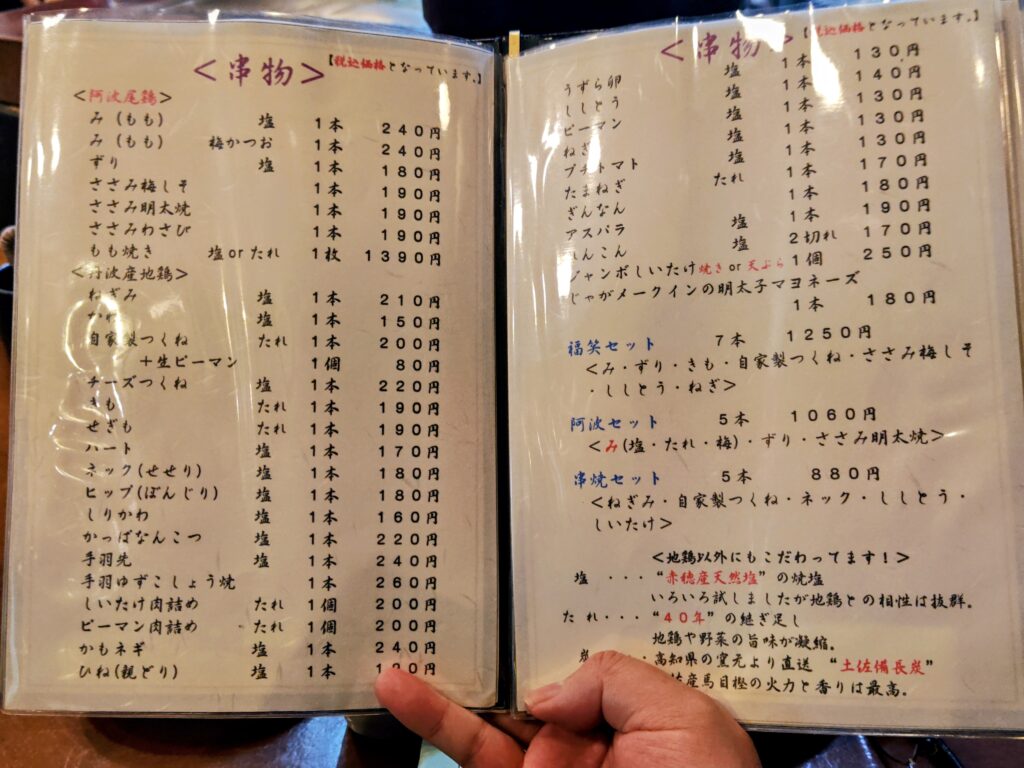 <串物>【税込価格となっています。】
<阿波尾鶏>
み（もも） 塩 1本 240円
み（もも） 梅かつお 1本 240円
ずり 塩 1本 180円
ささみ梅しそ 1本 190円
ささみ明太焼 1本 190円
ささみわさび 1本 190円
もも焼き 塩orたれ 1枚 1390円
<丹波産地鶏>
ねぎみ 塩 1本 210円
かわ 塩 1本 150円
自家製つくね たれ 1本 200円
＋生ピーマン 1個 80円
チーズつくね 塩 1本 220円
きも たれ 1本 190円
せぎも たれ 1本 190円
ハート 塩 1本 170円
ネック(せせり) 塩 1本 180円
ヒップ(ぼんじり) 塩 1本 180円
しりかわ 塩 1本 160円
かっぱなんこつ 塩 1本 220円
手羽先 塩 1本 240円
手羽ゆずこしょう焼 1本 260円
しいたけ肉詰め たれ 1個 200円
ピーマン肉詰め たれ 1個 200円
かもネギ 塩 1本 240円
ひね(親どり) 塩 1本 円
<串物>【税込価格となっています。】
うずら卵 塩 1本 130円
ししとう 塩 1本 140円
ピーマン 塩 1本 130円
ねぎ 塩 1本 130円
プチトマト 塩 1本 170円
たまねぎ たれ 1本 180円
ぎんなん 塩 1本 190円
アスパラ 塩 2切れ 170円
れんこん 1個 250円
ジャンボしいたけ焼きor天ぷら
じゃがメークインの明太子マヨネーズ
1本 180円
福笑セット 7本 1250円
<み・ずり・きも・自家製つくね・ささみ梅しそ
・ししとう・ねぎ>
阿波セット 5本 1060円
<み(塩・たれ・梅)・ずり・ささみ明太焼>
串焼セット 5本 880円
<ねぎみ・自家製つくね・ネック・ししとう・
しいたけ>
<地鶏以外にもこだわってます！>
塩 ・・・“赤穂産天然塩”の焼塩
いろいろ試しましたが地鶏との相性は抜群。
たれ・・・“40年”の継ぎ足し
地鶏や野菜の旨味が凝縮。
炭 ・・高知県の窯元より直送 “土佐備長炭”
佐産馬目樫の火力と香りは最高。